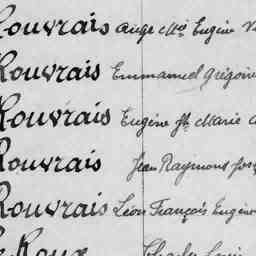 Rouvrais Ange Mie Eugène V
Rouvrais Emmanuel Grégoire
Rouvrais Eugène Jh Marie
Rouvrais Jean Raymond Jose
Rouvrais Léon François Eugène
Roux Charles Louis